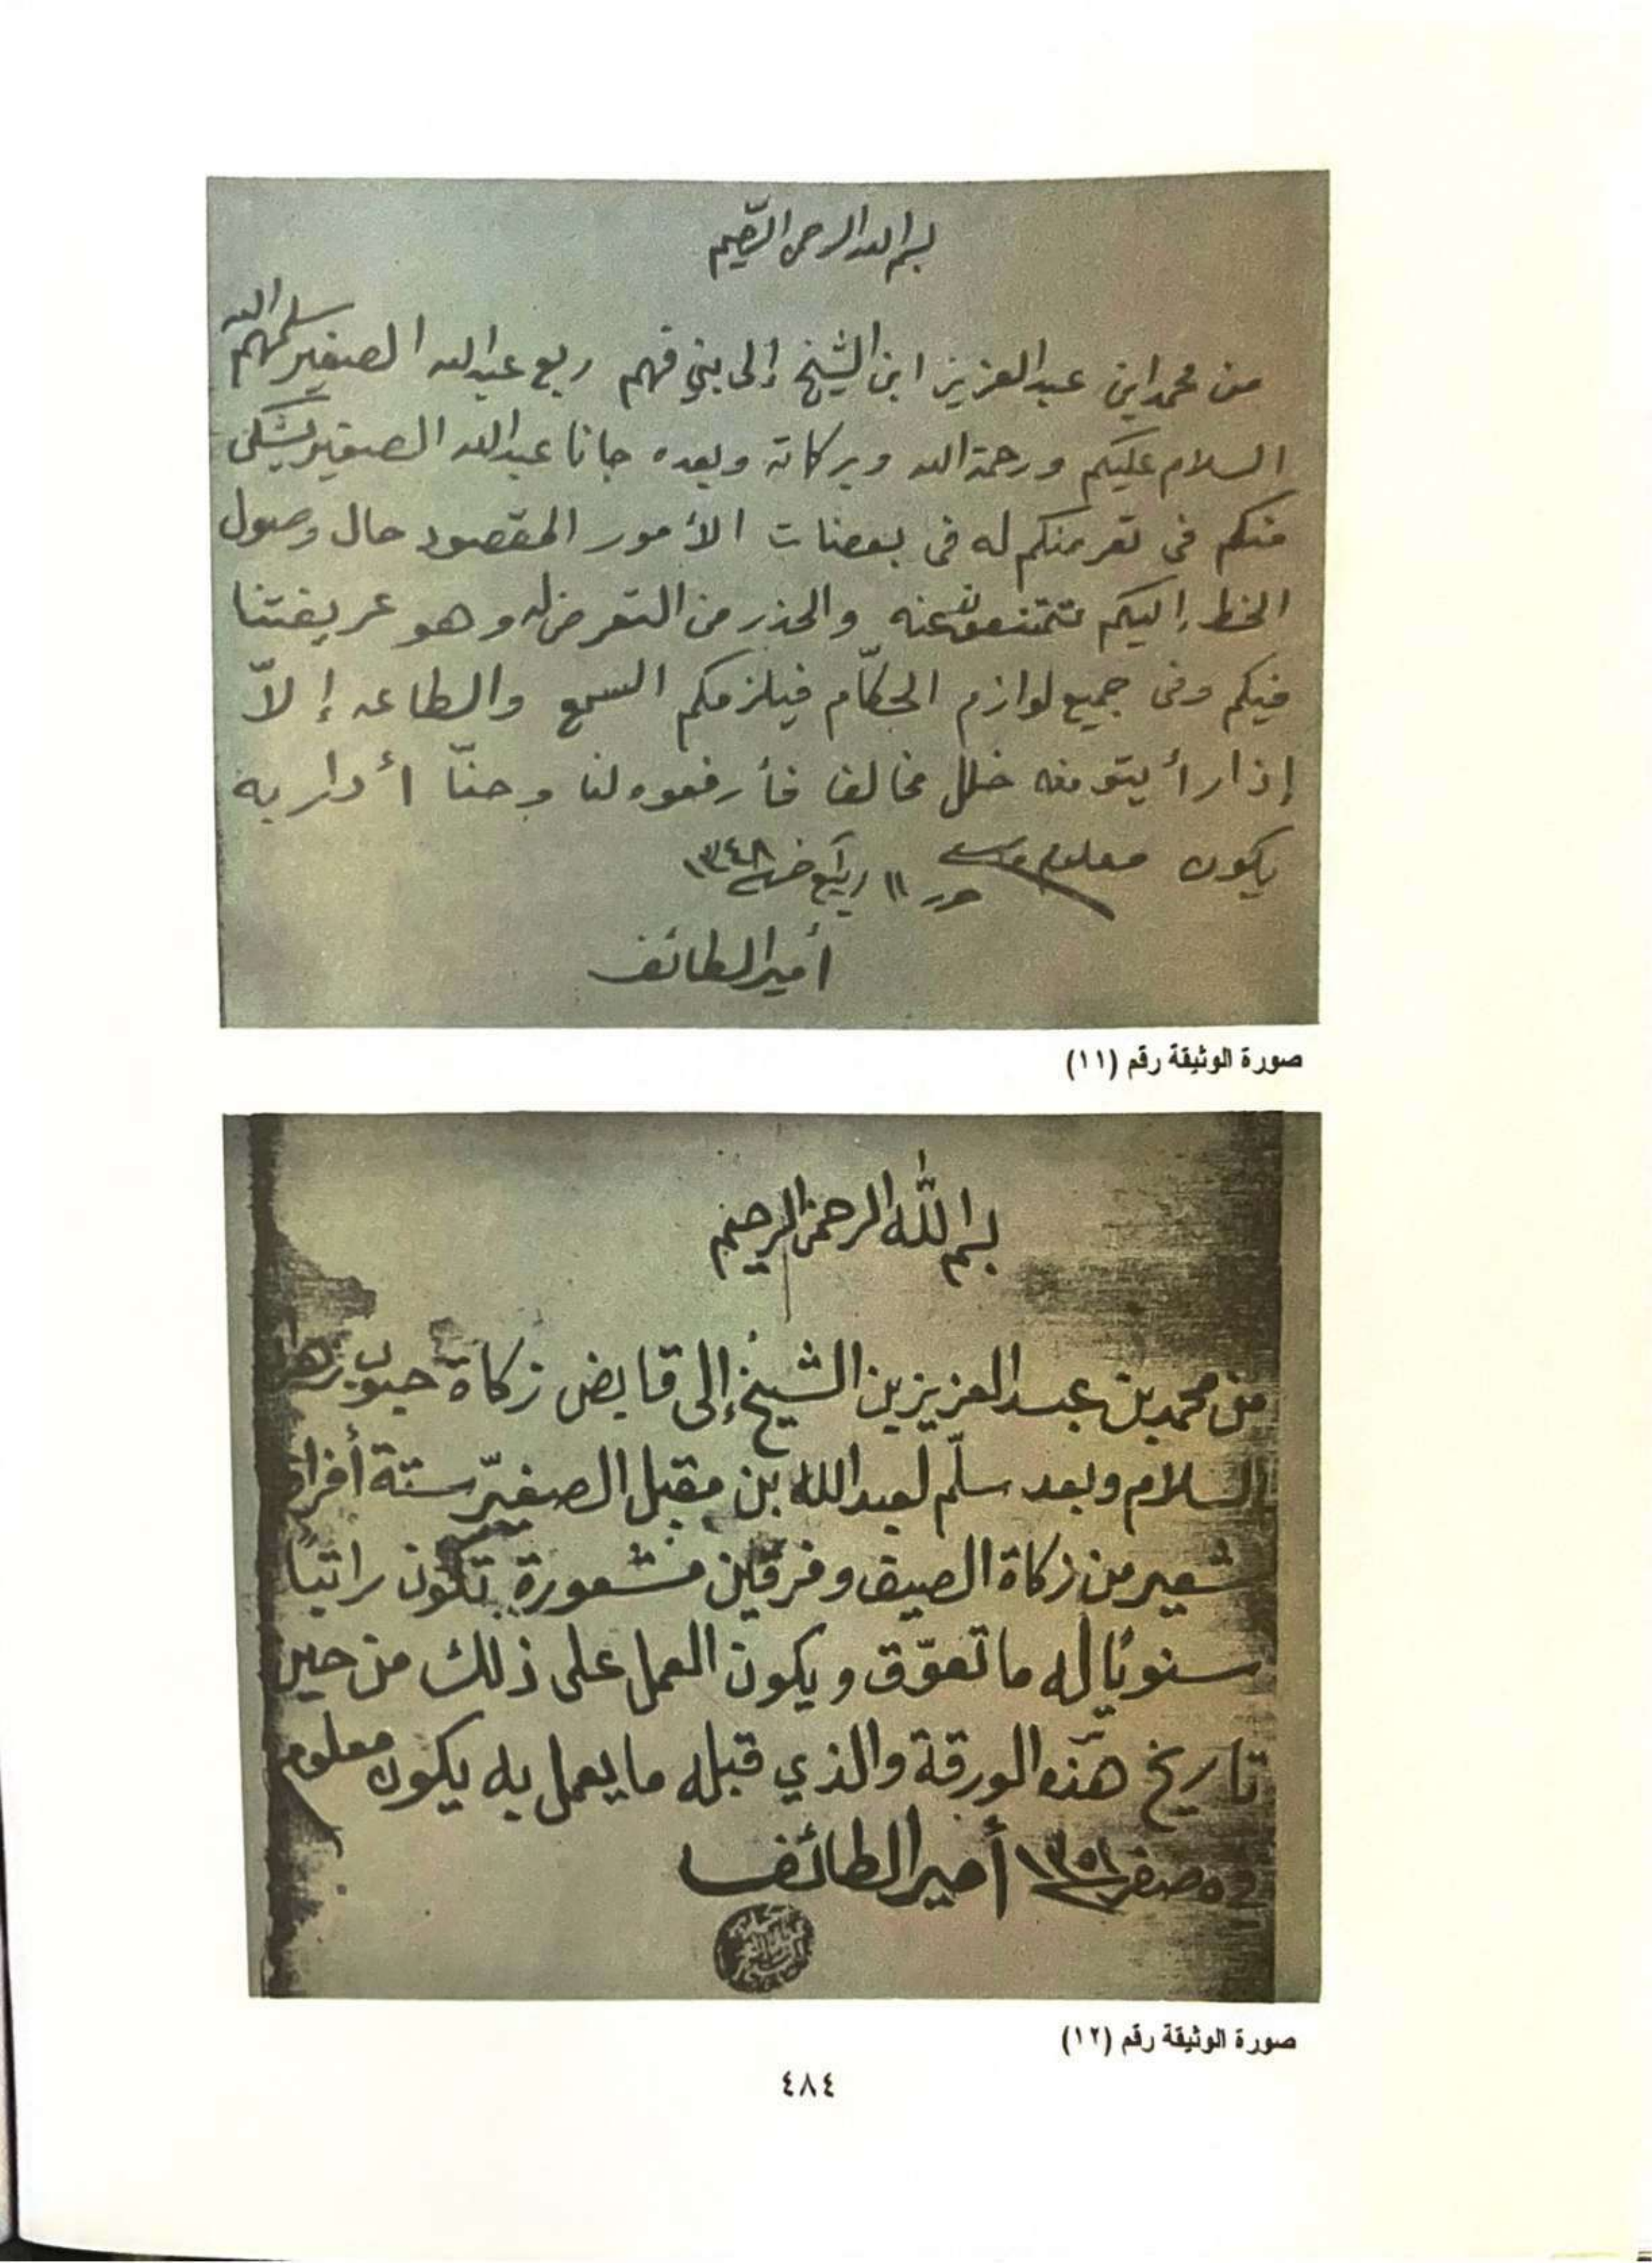 بسم الله الرحمن الرحيم
من محمد ابن عبد العزيز ابن الشيخ إلى بني فهم ربع عبدالله الصغير سلمهم الله
السلام عليكم ورحمة الله وبركاته وبعده جانا عبدالله الصغير يشتكي
منكم في تعرضكم له في بعضات الأمور المقصود حال وصول
الخط إليكم تتمنعون عنه والحذر من التعرض له وهو عريفتنا
فيكم وفي جميع لوازم الحكّام فيلزمكم السمع والطاعه إلاّ
إذا رأيتو منه خلل مخالف فأرفعوه لنا وحنّا أدرا به
يكون معلوم والسلام حرر ١١ ربيع خر ١٣٤٨
أمير الطائف
صورة الوثيقة رقم (١١)
بسم الله الرحمن الرحيم
من محمد بن عبد العزيز بن الشيخ إلى قابض زكاة حبوب
السلام وبعد سلّم لعبدالله بن مقبل الصغيّر ستة أفراق
شعير من زكاة الصيف وفرقين مشعورة تكون راتبًا
سنويًا له ما تعوّق ويكون العمل على ذلك من حين
تاريخ هذه الورقة والذي قبله ما يعمل به يكون معلوم
٥ صفر أمير الطائف
صورة الوثيقة رقم (١٢)
٤٨٤